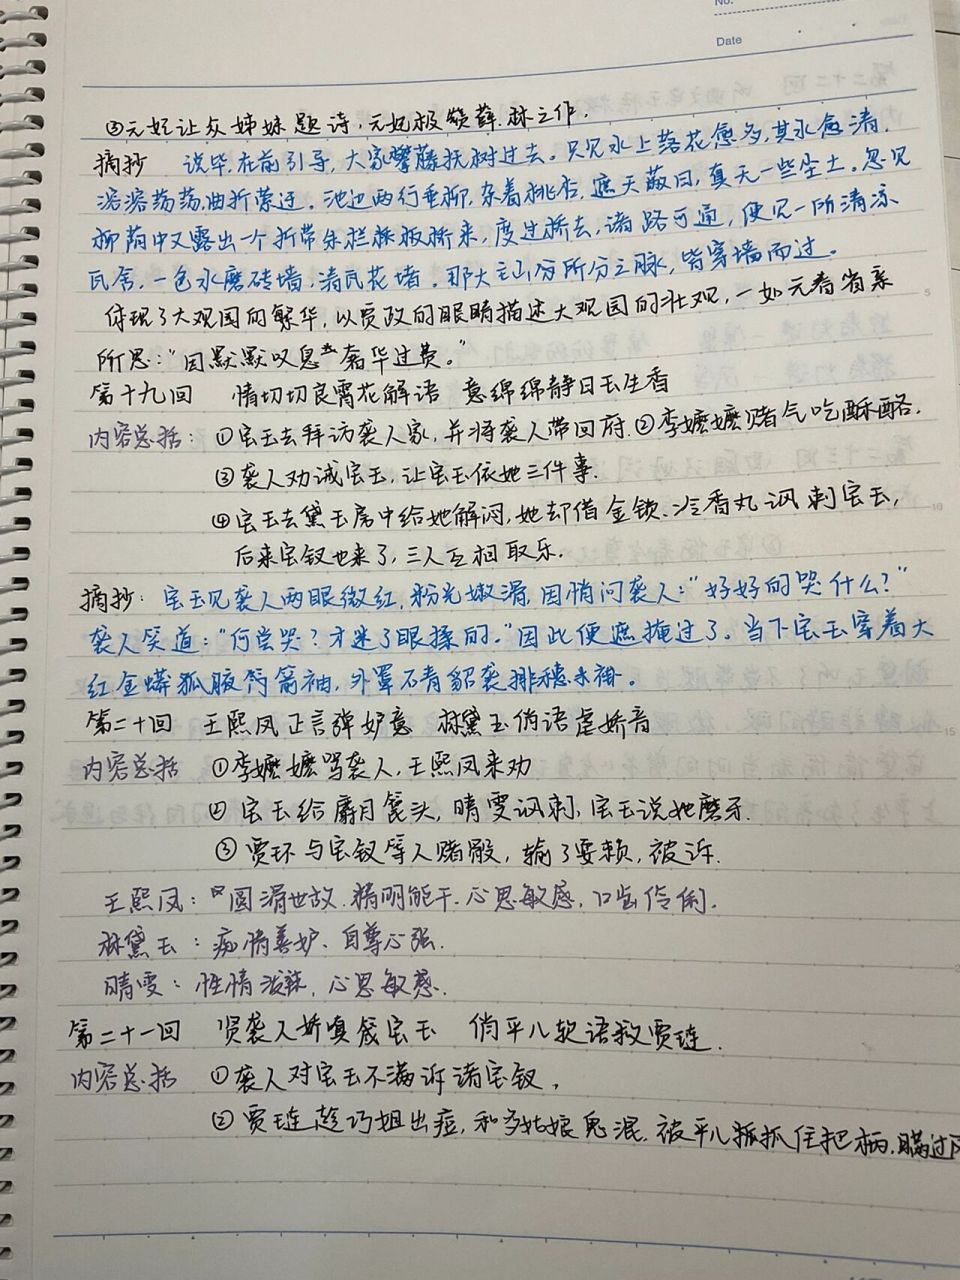 No.
Date
③元妃让众姊妹题诗,元妃极赞薛.林之作.
摘抄 说毕,在前引导,大家攀藤抚树过去。只见水上落花愈多,其水愈清,
溶溶荡荡,曲折萦迂。池边两行垂柳,杂着桃杏,遮天蔽日,真无一些尘土。忽见
柳荫中又露出一个折带朱栏板桥来,度过桥去,诸路可通,便见一所清凉
瓦舍,一色水磨砖墙,清瓦花堵。那大主山分所分之脉,皆穿墙而过。
体现了大观园的繁华,以贾政的眼睛描述大观园的壮观,一如元春省亲
所思:"因默默叹息奢华过费。"
第十九回 情切切良宵花解语 意绵绵静日玉生香
内容总括: ①宝玉去拜访袭人家,并将袭人带回府.②李嬷嬷赌气吃酥酪.
③袭人劝诫宝玉,让宝玉依她三件事.
④宝玉去黛玉房中给她解闷,她却借金锁.冷香丸讽刺宝玉,
后来宝钗也来了,三人互相取乐.
摘抄: 宝玉见袭人两眼微红,粉光嫩滑,因悄问袭人:"好好的哭什么?"
袭人笑道:"何尝哭?才迷了眼揉的."因此便遮掩过了。当下宝玉穿着大
红金蟒狐腋箭袖,外罩石青貂裘排穗褂。
第二十回 王熙凤正言弹妒意 林黛玉俏语谑娇音
内容总括 ①李嬷嬷骂袭人,王熙凤来劝
②宝玉给麝月篦头,晴雯讽刺,宝玉说她磨牙.
③贾环与宝钗等人赌骰,输了耍赖,被诉.
王熙凤:圆滑世故.精明能干.心思敏感,口齿伶俐.
林黛玉:痴情善妒、自尊心强.
晴雯:性情泼辣,心思敏感.
第二十一回 贤袭人娇嗔箴宝玉 俏平儿软语救贾琏.
内容总括 ①袭人对宝玉不满诉诸宝钗,
②贾琏趁巧姐出痘,和多姑娘鬼混,被平儿抓住把柄,瞒过